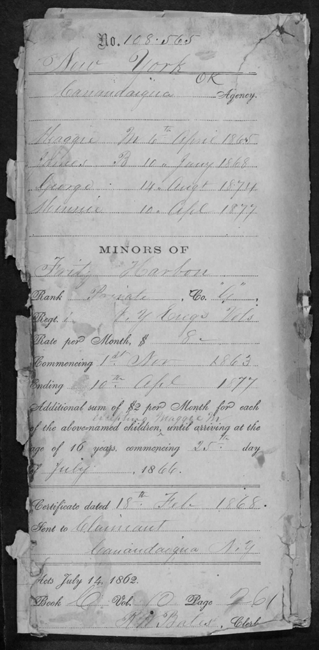 No. 108.565
New York
OK
Canandaigua Agency.
Maggie M. 6th April 1865
James B 10 " Jany 1868
George 14 " Augt 1874
Minnie 10 " Apl 1877
MINORS OF
Fritz Harbon
Rank Private, Co. "G"
Regt N.Y. Engs Vols
Rate per Month, $ 8.
Commencing 1st Nov 1863
Ending 10th Apl 1877
Additional sum of $2 per Month for each
of the above-named children, until arriving at the
age of 16 years, commencing 25th day
of July, 1866.
Certificate dated 18th Feb 1868.
Sent to Claimant
Canandaigua N.Y
Acts July 14, 1862.
Book Vol. Page 261
Clerk